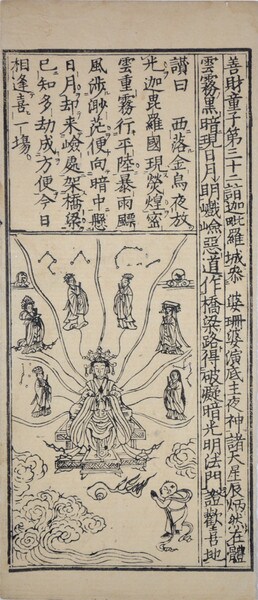 善財童子第三十二詣迦毗羅城參 婆珊婆演底主夜神諸天星辰炳然在體
雲霧黑暗現日月明巇嶮惡道作橋梁路得破癡暗光明法門證歡喜地
讚曰 西落金烏夜放
光迦毘羅國現熒煌密
雲重霧行平陸暴雨飄
風涉渺茫便向暗中懸
日月却来嶮處架橋梁
已知多劫成方便今日
相逢喜一場